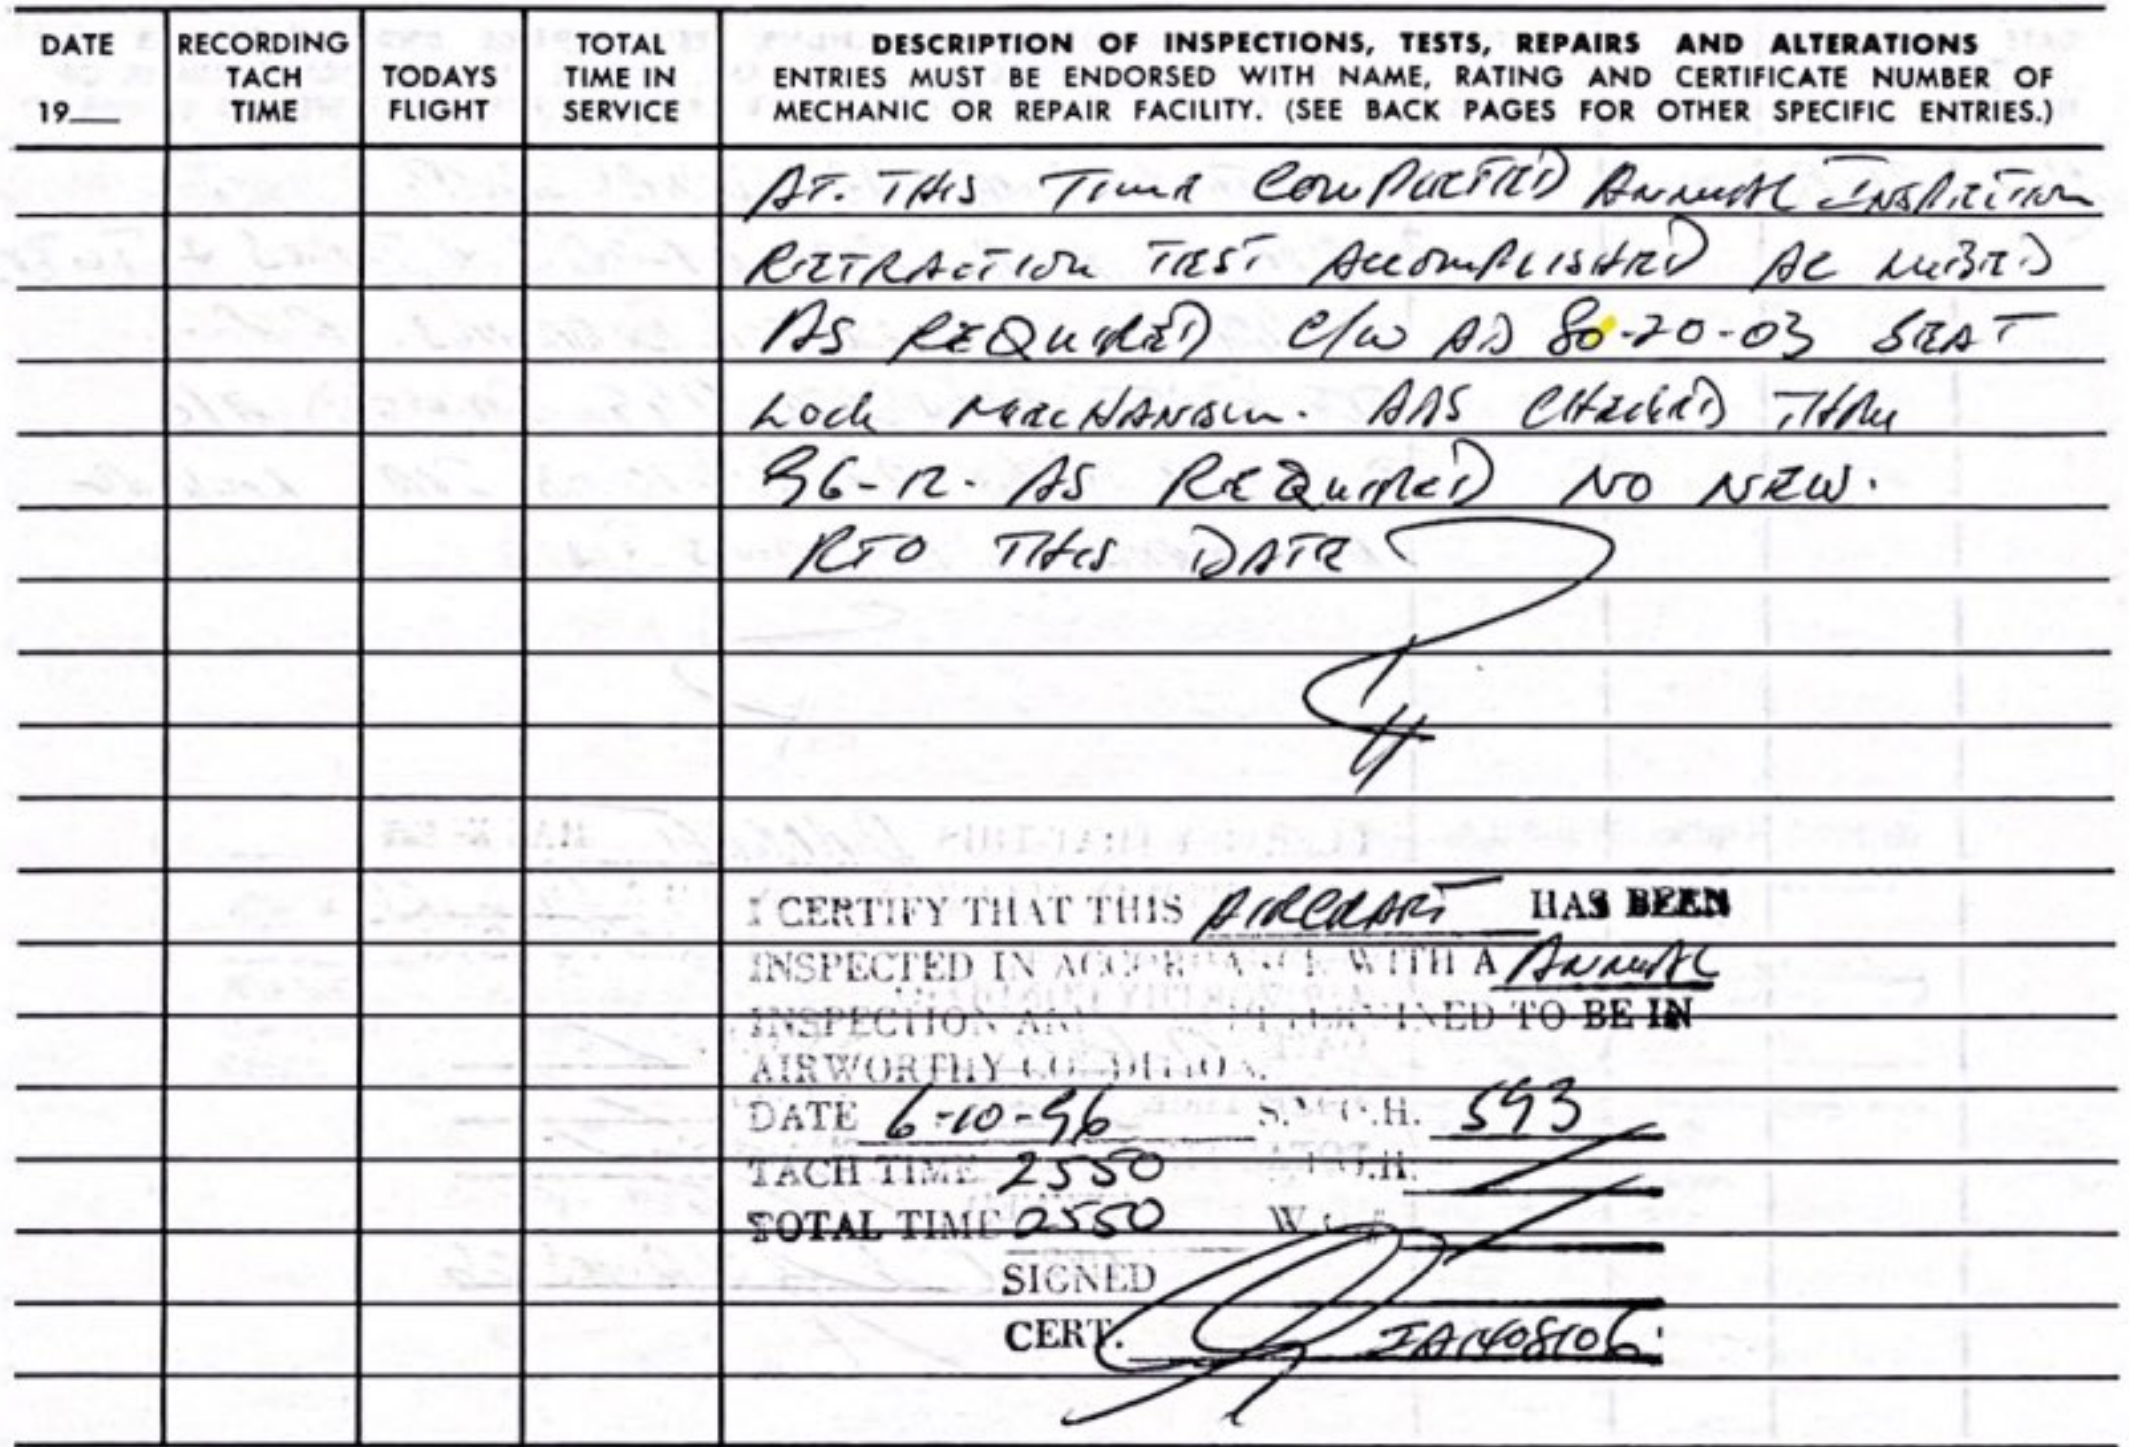 DATE
19__
RECORDING
TACH
TIME
TODAYS
FLIGHT
TOTAL
TIME IN
SERVICE
DESCRIPTION OF INSPECTIONS, TESTS, REPAIRS AND ALTERATIONS
ENTRIES MUST BE ENDORSED WITH NAME, RATING AND CERTIFICATE NUMBER OF
MECHANIC OR REPAIR FACILITY. (SEE BACK PAGES FOR OTHER SPECIFIC ENTRIES.)
AT. THIS TIME COMPLETED ANNUAL INSPECTION
RETRACTION TEST ACCOMPLISHED AC LUBED
AS REQUIRED C/W AD 80-20-03 SEAT
LOCK MECHANISM. ADS CHECKED THRU
96-12. AS REQUIRED NO NEW.
RTO THIS DATE
I CERTIFY THAT THIS AIRCRAFT HAS BEEN
INSPECTED IN ACCORDANCE WITH A ANNUAL
INSPECTION AND DETERMINED TO BE IN
AIRWORTHY CONDITION.
DATE 6-10-96 S.M.O.H. 593
TACH TIME 2550
TOTAL TIME 2550
SIGNED
CERT. IA1408106